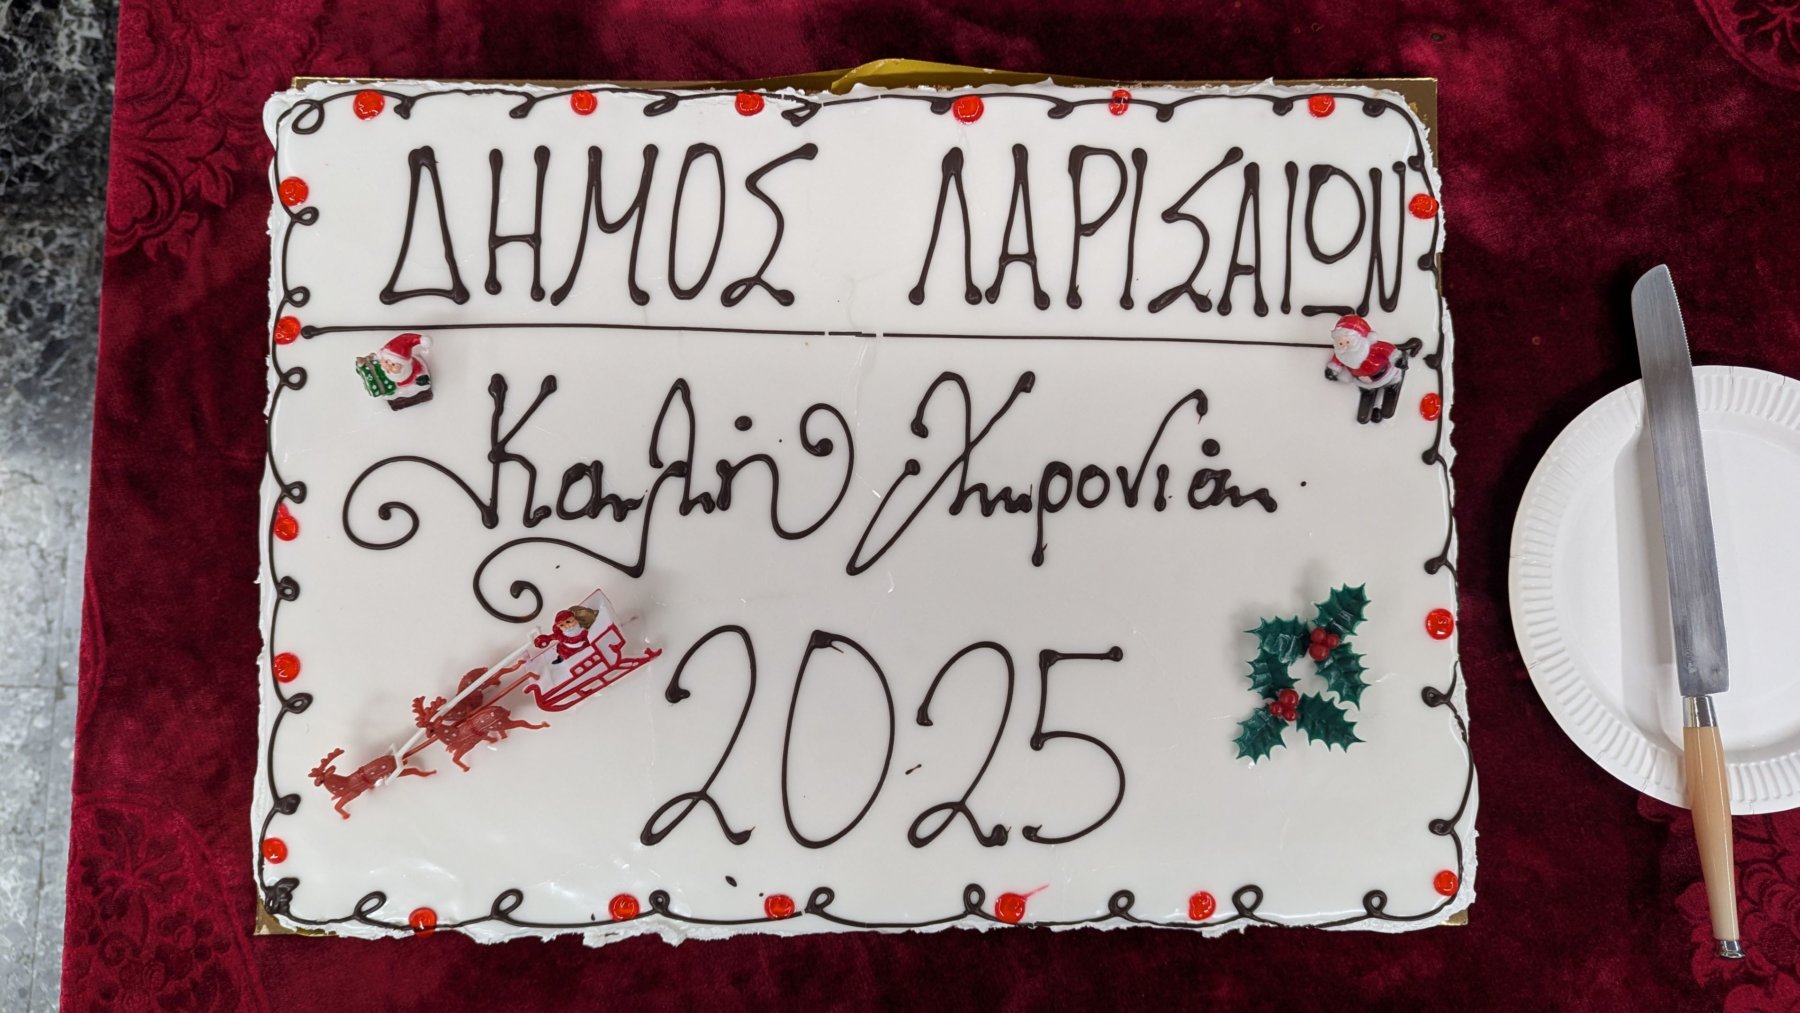 ΔΗΜΟΣ ΛΑΡΙΣΑΙΩΝ
Καλή Χρονιά
2025